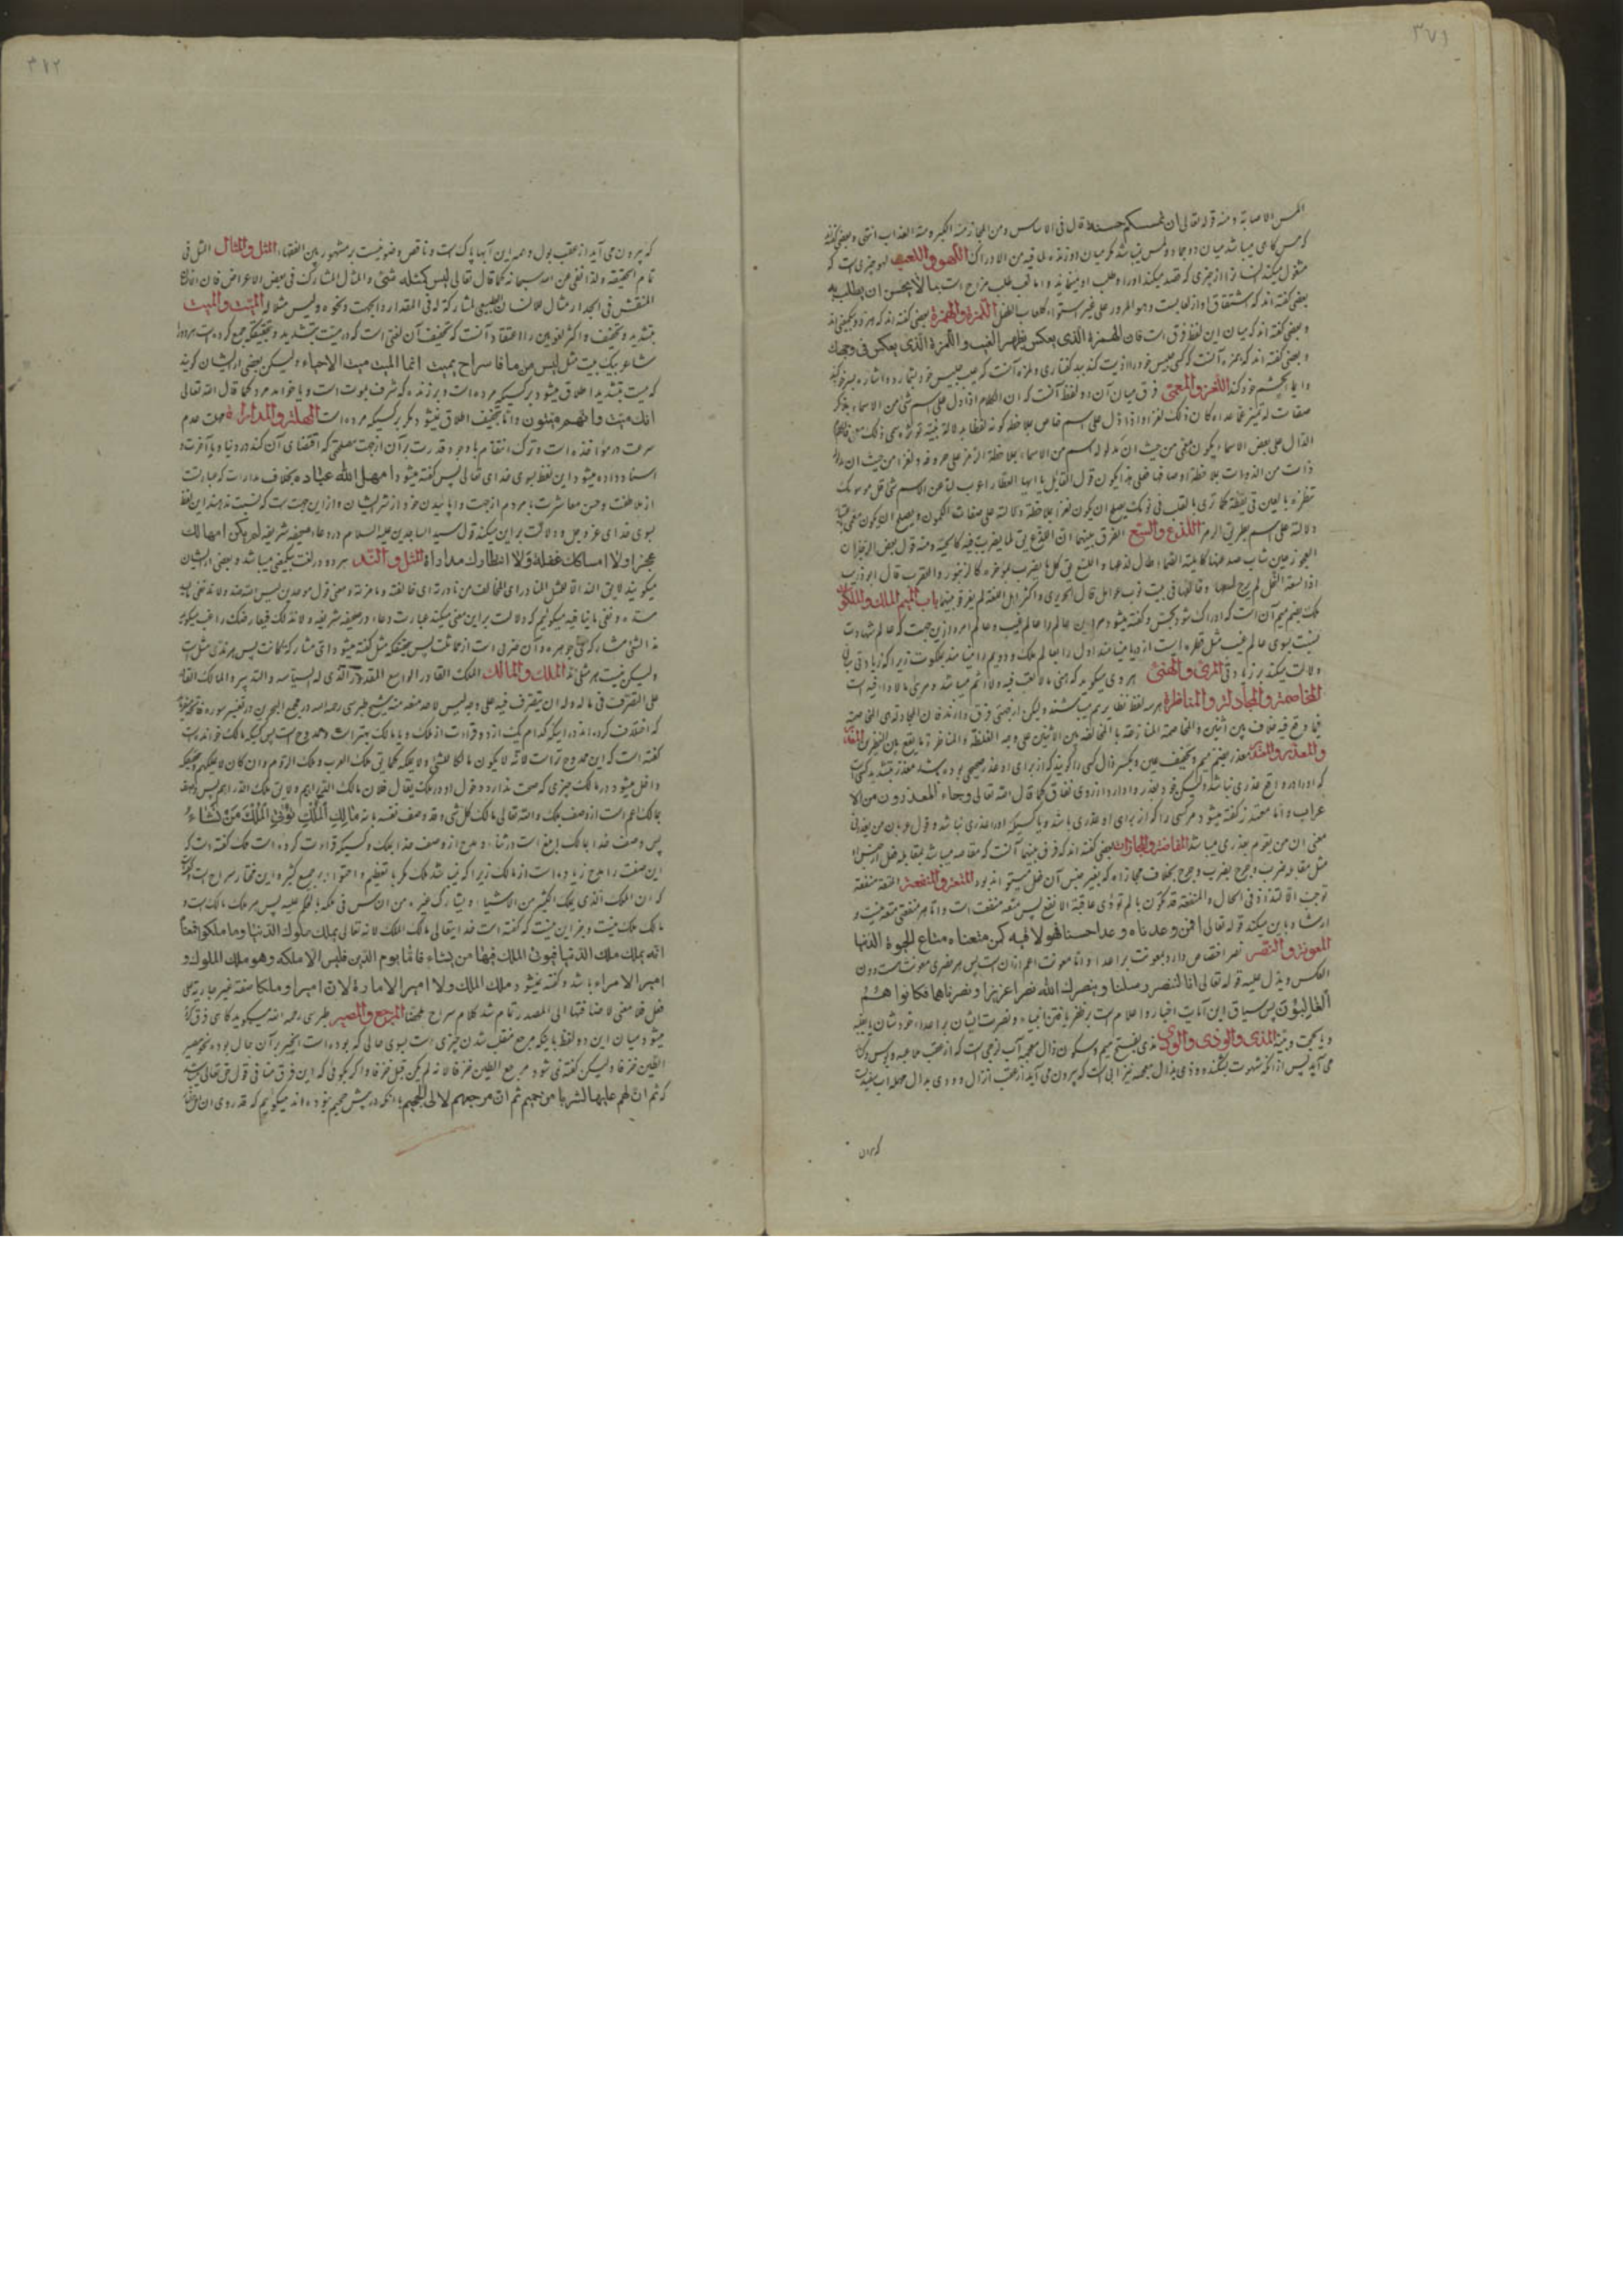 ۳۷۱
المس الاصابة ومنه قوله تعالی ان تمسسکم حسنة قال فی الاساس ومن المجاز مسه الکبر ومسه العذاب انتهی و بعضی گفته
که مس گاهی میباشد میان دو جماد و لمس نمیباشد مگر میان دو زنده لما فیه من الادراک اللهو واللعب لهو چیزی است که
مشغول میکند انسان را از چیزی که قصد میکند او را و طلب او مینماید و اما لعب طلب مزاح است بما لا یحسن ان یطلب به
بعضی گفته اند که اشتقاق او از لعاب است وهو المرور علی غیر استواء کلعاب الطفل اللمزة والهمزة بعضی گفته اند که هر دو بیکمعنی اند
و بعضی گفته اند که میان این لفظ فرق است فان الهمزة الذی یعکس بظهر الغیب واللمزة الذی یعکس فی وجهک
و بعضی گفته اند که همزه آنست که کسی جلیس خود را اذیت کند ببد گفتاری و لمزه آنست که عیب جلیس خود بشمارد و اشاره بسر خود کند
و ایما بچشم خود کند اللغز والمعمی فرق میان آن دو لفظ آنست که ان الکلام اذا دل علی اسم شی من الاسماء بذکر
صفات له تمیزه عما عداه کان ذلک لغزا و اذا دل علی اسم خاص بملاحظة کونه لفظا بدلالة مرموزة سمی ذلک معمی فالکلام
الدال علی بعض الاسماء یکون معمی من حیث ان مدلوله اسم من الاسماء بملاحظة الرمز علی حروفه و لغزا من حیث ان مدلوله
ذات من الذوات بملاحظة اوصافها فعلی هذا یکون قول القائل یا ایها العطار اعرب لنا عن اسم شی قل فی سومک
تنظره بالعین فی یقظة کما تری بالقلب فی نومک یصلح ان یکون لغزا بملاحظة دلالته علی صفات الکمون و یصلح ان یکون معمی باعتبار
دلالته علی اسم بطریق الرمز اللدغ واللسع الفرق بینهما ان اللدغ یق لما یضرب بفیه کالحیة ومنه قول بعض الرجاز ان
العجوز حین شاب صدغها کالحیة الصماء طال لدغها و اللسع یق لکل ما یضرب بمؤخره کالزنبور والعقرب قال ابو ذویب
اذا لسعته النحل لم یرج لسعها و خالفها فی بیت نوب عوامل قال الحریری و اکثر اهل اللغة لم یفرقوا بینهما باب المیم الملک والملکوت
ملک بضم میم آن است که ادراک شود بحس و گفته میشود مر این عالم را عالم غیب و عالم امر و ازین جهت که عالم شهادت
نسبت بسوی عالم غیب مثل قطره ایست از دریا مینامند اول را بعالم ملک و دویم را مینامند بملکوت زیرا که زیادتی مبانی
دلالت میکند بر زیادتی المرئ والهنئ هروی میگوید که هنی ما لا تعب فیه ولا اثم میباشد و مرئ ما لا داء فیه است
المخاصمة والمجادلة والمناظرة هر سه لفظ نظایر هم میباشند و لیکن از بعضی فرق دارند فان المجادلة هی المخاصمة
فیما وقع فیه خلاف بین اثنین والمخاصمة المنازعة بالمخالفة بین الاثنین علی وجه الغلظة والمناظرة ما یقع بین النظیرین المعذر
والمعذر والمعتذر معذر بضم میم و تخفیف عین و بکسر ذال کسی را گویند که از برای او عذر صحیحی بوده باشد معذر بتشدید کسی است
که او را در واقع عذری نباشد و لیکن خود بعذر وا دارد از روی نفاق کما قال الله تعالی وجاء المعذرون من الا
عراب و اما معتذر گفته میشود مر کسی را که از برای او عذری باشد و یا کسیکه او را عذری نباشد و قول عرب من یعذرنی
معنی ان من یقوم بعذری میباشد المقاصة والمجازات بعضی گفته اند که فرق بینهما آنست که مقاصه میباشد بمقابله فعل از جنس او
مثل مقابله ضرب بضرب و جرح بجرح بخلاف مجازاة که بغیر جنس آن فعل میشود المتعة والمنفعة المتعة منفعة
توجب الالتذاذ فی الحال والمنفعة قد تکون بالم تودی عاقبته الی نفع پس متعه منفعت است و اما هر منفعتی متعه نیست و
ارشاد باین میکند قوله تعالی افمن وعدناه وعدا حسنا فهو لاقیه کمن متعناه متاع الحیوة الدنیا
المعونة والنصر نصر اختصاص دارد بمعونت بر اعداء و اما معونت اعم ازان است پس هر نصری معونت هست دون
العکس و یدل علیه قوله تعالی انا لننصر رسلنا و ینصرک الله نصرا عزیزا و نصرناهم فکانوا هم
الغالبون پس سیاق این آیات اخبار و اعلام است بر ظفر یافتن انبیاء و نصرت ایشان بر اعداء خودشان یا بغلبه
و یا بحجت و بینة المذی والوذی والودی مذی بفتح میم و سکون ذال معجمه آب لزجی است که از عقب ملاعبه و بوس و کنار
می آید پس از آنکه شهوت بشکند و وذی بذال معجمه نیز آبی است که بیرون می آید از عقب انزال و ودی بدال مهمله آب سفید است
که بیرون
۳۷۲
که بیرون می آید از عقب بول و همه این آبها پاک است و ناقض وضو نیست بر مشهور بین الفقهاء المثل والمثال المثل فی
تام الحقیقة ولذا نفی عن الله سبحانه کما قال تعالی لیس کمثله شئ والمثال المشارک فی بعض الاعراض فان الانسان
المنقش فی الجدار مثال للانسان الطبیعی لمشارکته له فی المقدار والجهت و نحوه ولیس مثلا له المیت والمیت
بتشدید و تخفیف و اکثر لغویین را اعتقاد آنست که تخفیف آن لغتی است که در میت بتشدید و تحقیقا جمع کرده است هر دو را
شاعر بیک بیت مثل لیس من مات فاستراح بمیت انما المیت میت الاحیاء و لیکن بعضی از ایشان گویند
که میت بتشدید اطلاق میشود بر کسیکه مرده است و بر زنده که مشرف بموت است و یا خواهد مرد کما قال الله تعالی
انک میت وانهم میتون و اما بتخفیف اطلاق نمیشود مگر بر کسیکه مرده است المهلة والمداراة مهلت عدم
سرعت در مؤاخذه است و ترک انتقام با وجود قدرت بر آن از جهت مصلحتی که اقتضای آن کند در دنیا و یا آخرت و
اسناد داده میشود این لفظ بسوی خدای تعالی پس گفته میشود امهل الله عباده بخلاف مدارات که عبارتست
از ملاطفت و حسن معاشرت با مردم از جهت واپائیدن خود از شر ایشان و از این جهت است که نسبت ندهند این لفظ
بسوی خدای عز و جل و دلالت بر این میکند قول سید الساجدین علیه السلام در دعاء صحیفه شریفه لم یکن امهالک
عجزا ولا امساکک غفلة ولا انتظارک مداراة المثل والند هر دو در لغت بیکمعنی میباشد و بعضی از ایشان
میگویند لا یق الند الا للمثل المناد ای المخالف من ناددته ای خالفته و نافرته و معنی قول موحدین لیس لله ضد ولا ند نفی ما یسد
مسده و نفی ما ینافیه میگوئیم که دلالت بر این معنی میکند عبارت دعاء در صحیفه شریفه ولا ند لک فیعارضک راغب میگوید
ند الشئ مشارکه فی جوهره و آن ضربی است از مماثلت پس بحقیقت که مثل گفته میشود در ای مشارکة کانت پس هر ندی مثل است
و لیکن نیست هر مثلی ند الملک والمالک الملک القادر الواسع المقدرة الذی له السیاسة والتدبیر والمالک القادر
علی التصرف فی ماله وله ان یتصرف فیه علی وجه لیس لاحد منعه منه شیخ طبرسی رحمه الله در مجمع البحرین در تفسیر سوره فاتحه میفرماید
که اختلاف کرده اند در اینکه کدام یک از دو قرائت از ملک و یا مالک بهتر است و ممدوح است پس کسیکه مالک خوانده است
گفته است که این ممدوح تر است لانه لا یکون مالکا للشئ ولا یملکه کما یق ملک العرب وملک الروم وان کان لا یملکهم وچیزیکه
داخل میشود در مالک چیزی که صحت ندارد دخول او در ملک یقال فلان مالک الدراهم ولا یق ملک الدراهم پس وصف
بمالک اعم است از وصف بملک والله تعالی مالک کل شئ وقد وصف نفسه بانه مالک الملک تؤتی الملک من تشاء
پس وصف خدا بمالک ابلغ است در ثناء و مدح از وصف خدا بملک و کسیکه قراءت کرده است ملک گفته است که
این صفت را مدح زیاده است از مالک زیرا که نمیباشد ملک مگر با تعظیم و احتواء بر جمع کثیر و این مختار سراج است و گفته است
که ان الملک الذی یملک الکثیر من الاشیاء ویشارک غیره من الناس فی ملکه بالحکم علیه پس هر ملک مالک است و
مالک ملک نیست و بجز این نیست که گفته است خدایتعالی مالک الملک لانه تعالی یملک ملوک الدنیا وما ملکوا فمعناه
انه یملک ملک الدنیا فیؤتی الملک فیها من یشاء فاما یوم الدین فلیس الا ملکه وهو ملک الملوک و
امیر الامراء باشد و گفته نمیشود ملک الملک ولا امیر الامارة لان امیرا وملکا صفة غیر جاریة علی
فعل فلا معنی لاضافتها الی المصدر تمام شد کلام سراج ملخصا المرجع والمصیر طبرسی رحمه الله میگوید گاهی فرق کرده
میشود میان این دو لفظ باینکه مرجع منقلب شدن چیزی است بسوی حالی که بوده است الخیر بر آن حال بوده نحو مصیر
الطین خزفا و لیکن گفته نمی شود مرجع الطین خزفا لانه لم یکن قبل خزفا و اگر بگوئی که این فرق منافی قول حق تعالی میباشد
که ثم ان لهم علیها لشوبا من حمیم ثم ان مرجعهم لالی الجحیم با آنکه در پیش جحیم نبوده اند میگوئیم که